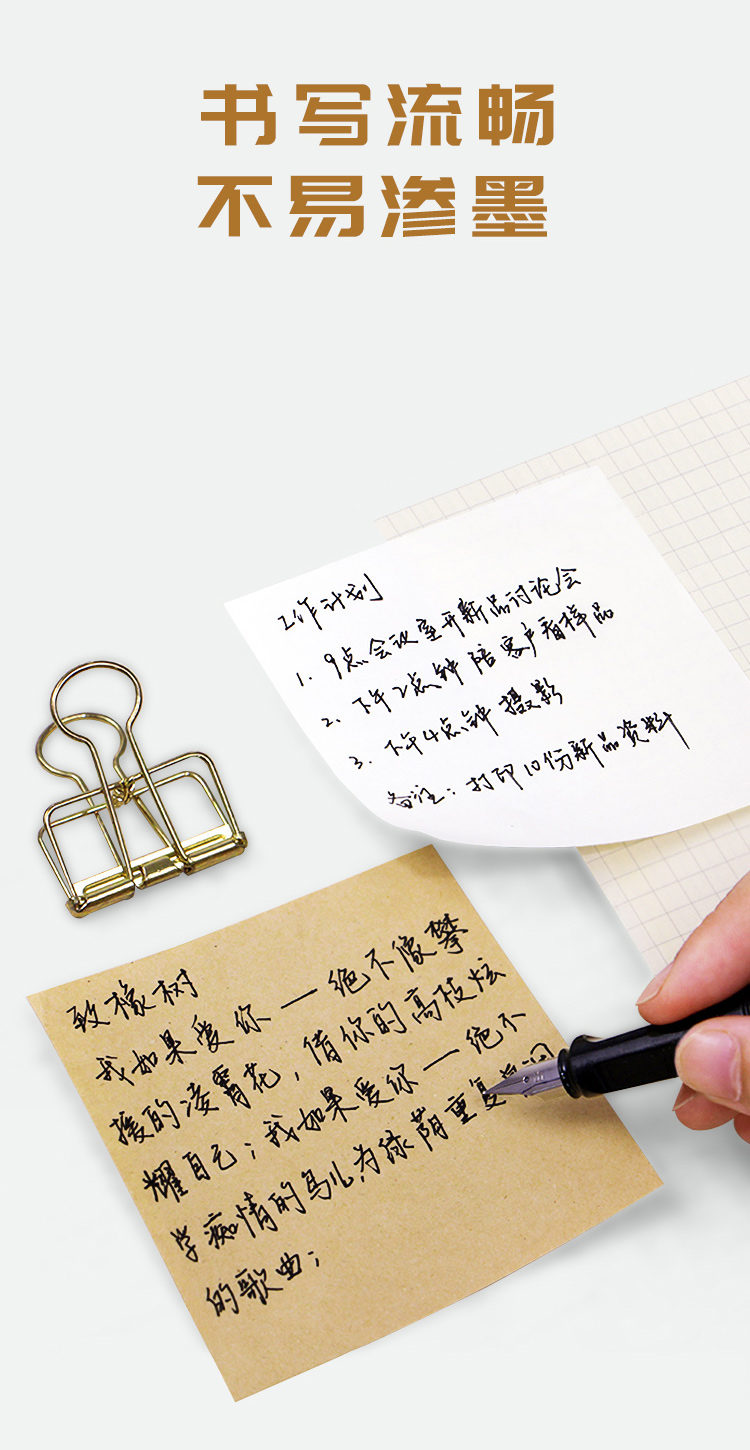 书写流畅
不易渗墨
工作计划
1. 9点会议室开新品讨论会
2、下午2点钟 陪客户看样品
3、下午4点钟 摄影
备注：打印10份新品资料
致橡树
我如果爱你 — 绝不像攀
援的凌霄花，借你的高枝炫
耀自己；我如果爱你 — 绝不
学痴情的鸟儿,为绿荫重复
的歌曲；